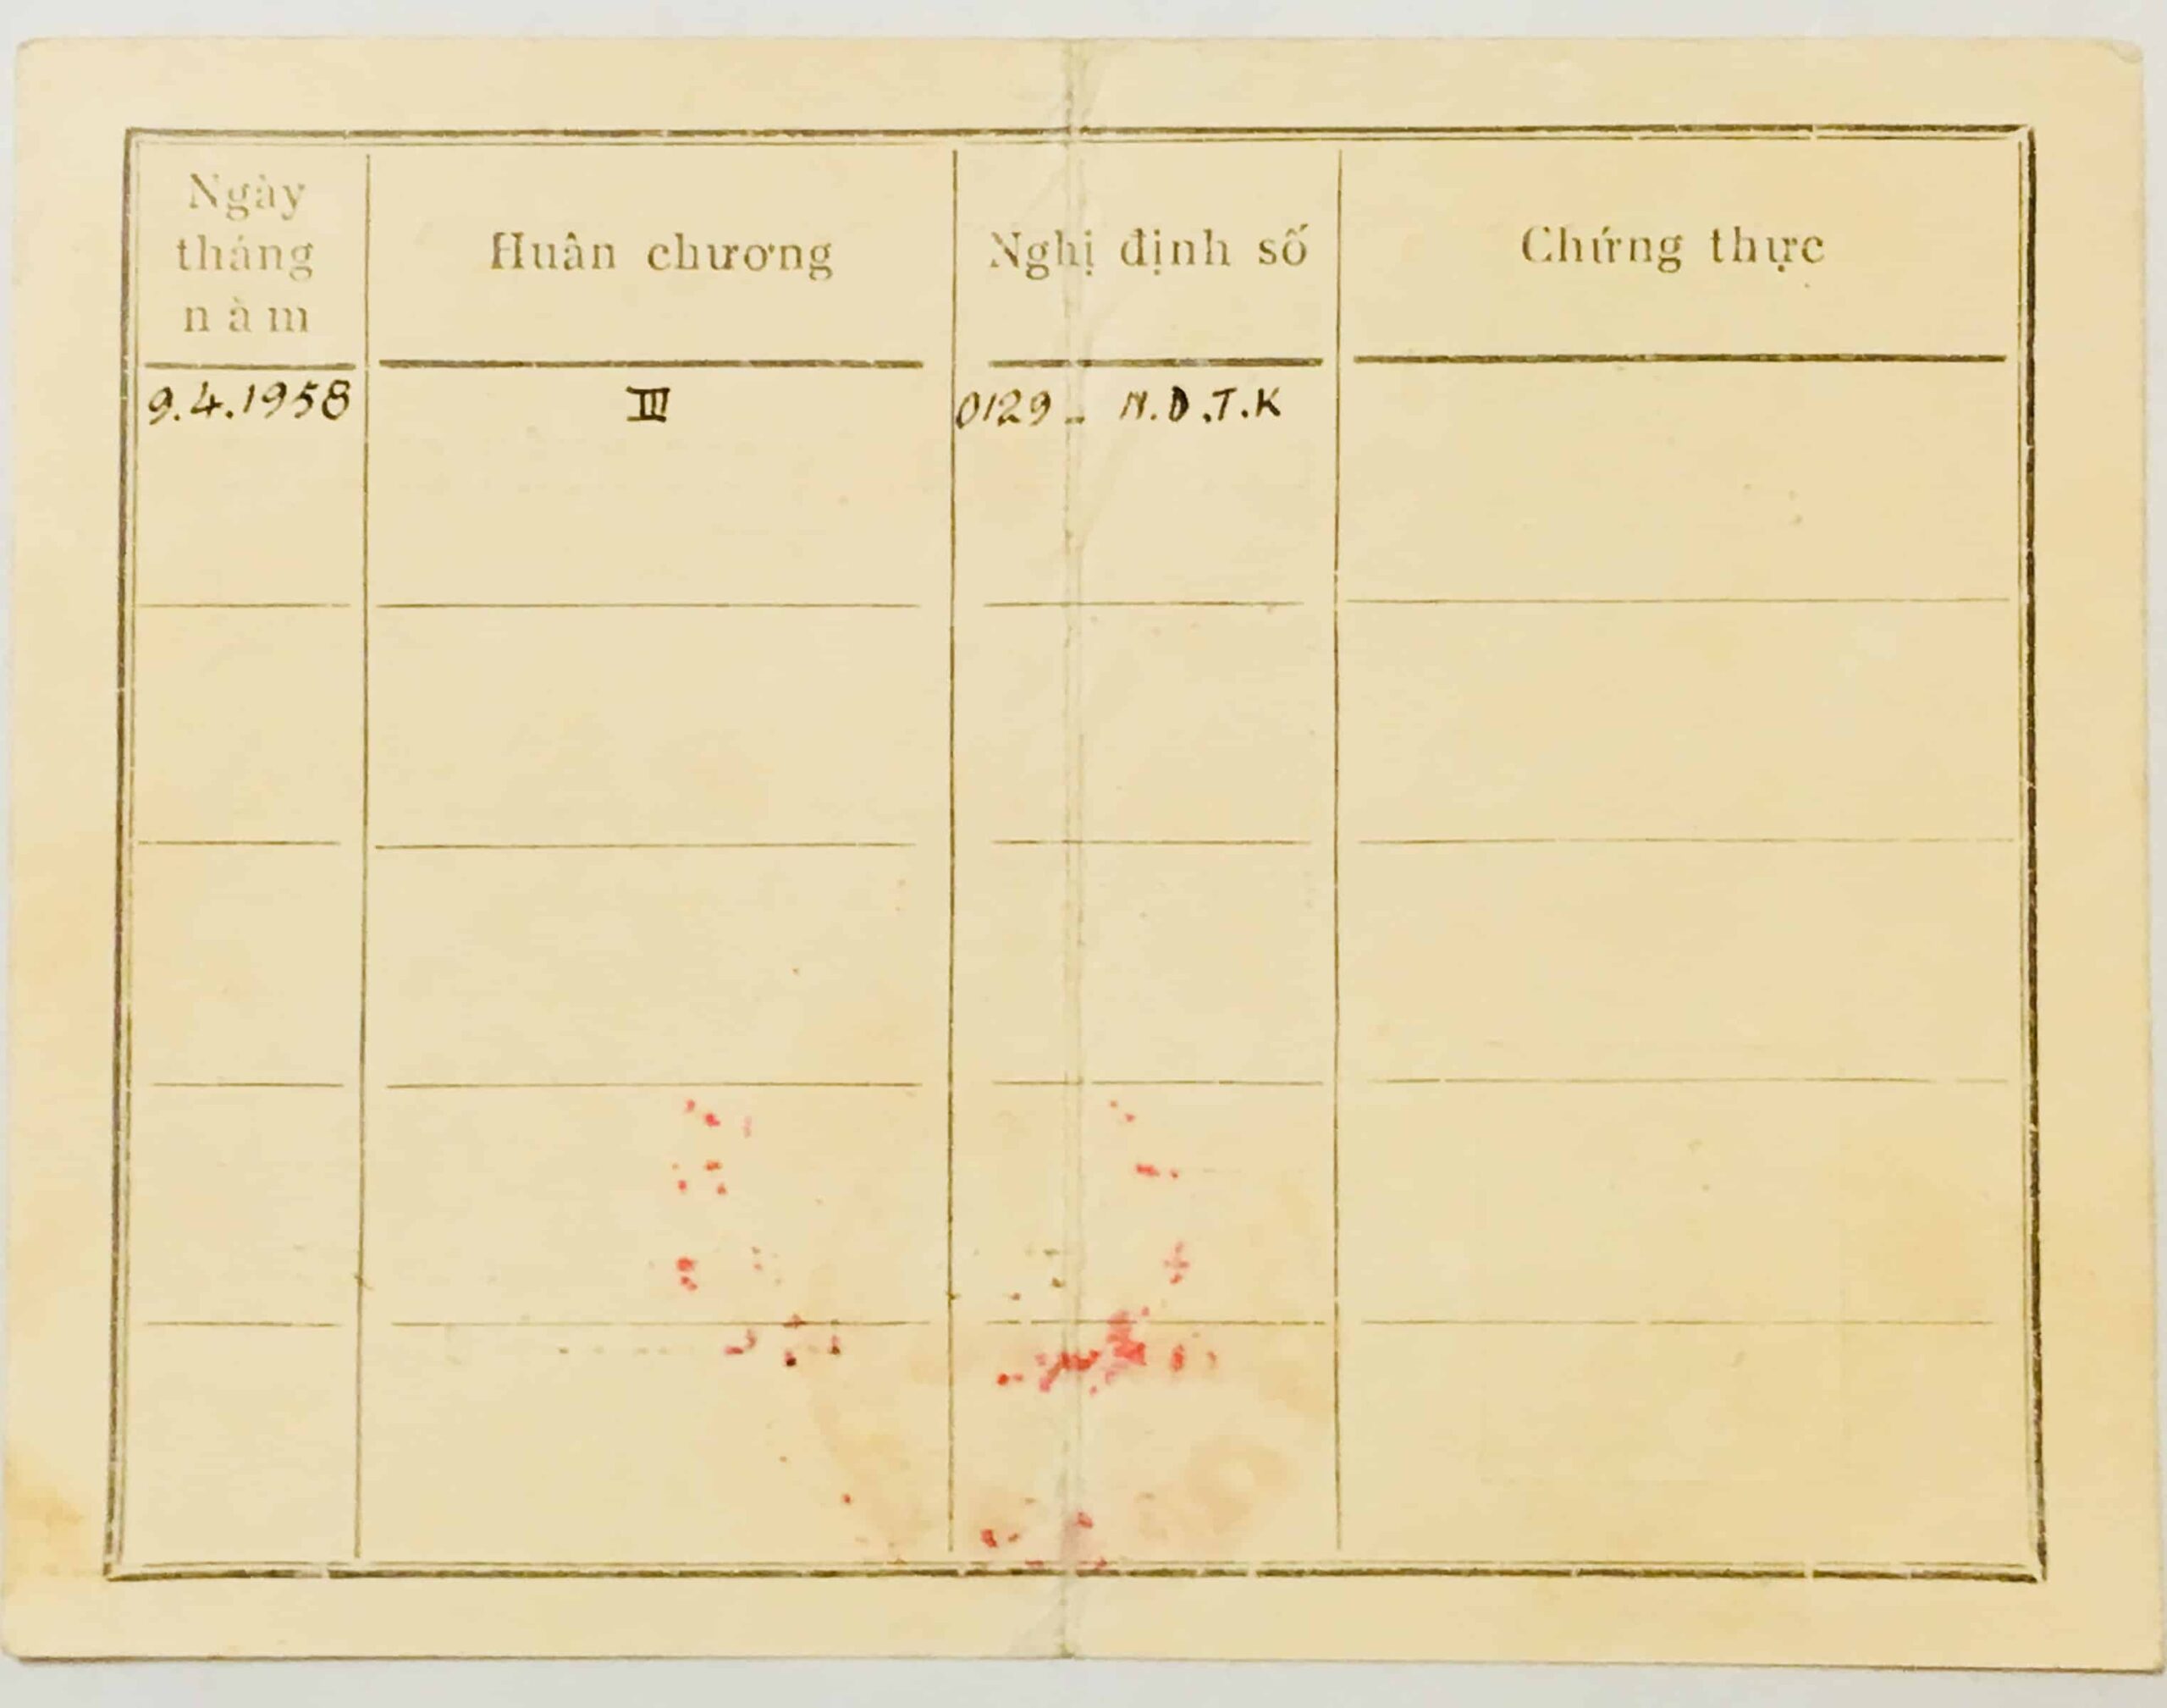 Ngày
tháng
năm
Huân chương
Nghị định số
Chứng thực
9.4.1958
III
0129 - N.D.T.K